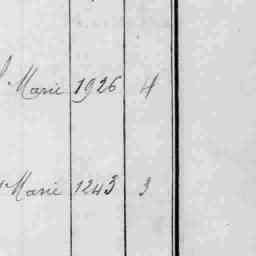 Marie 1926 4
Marie 1243 3